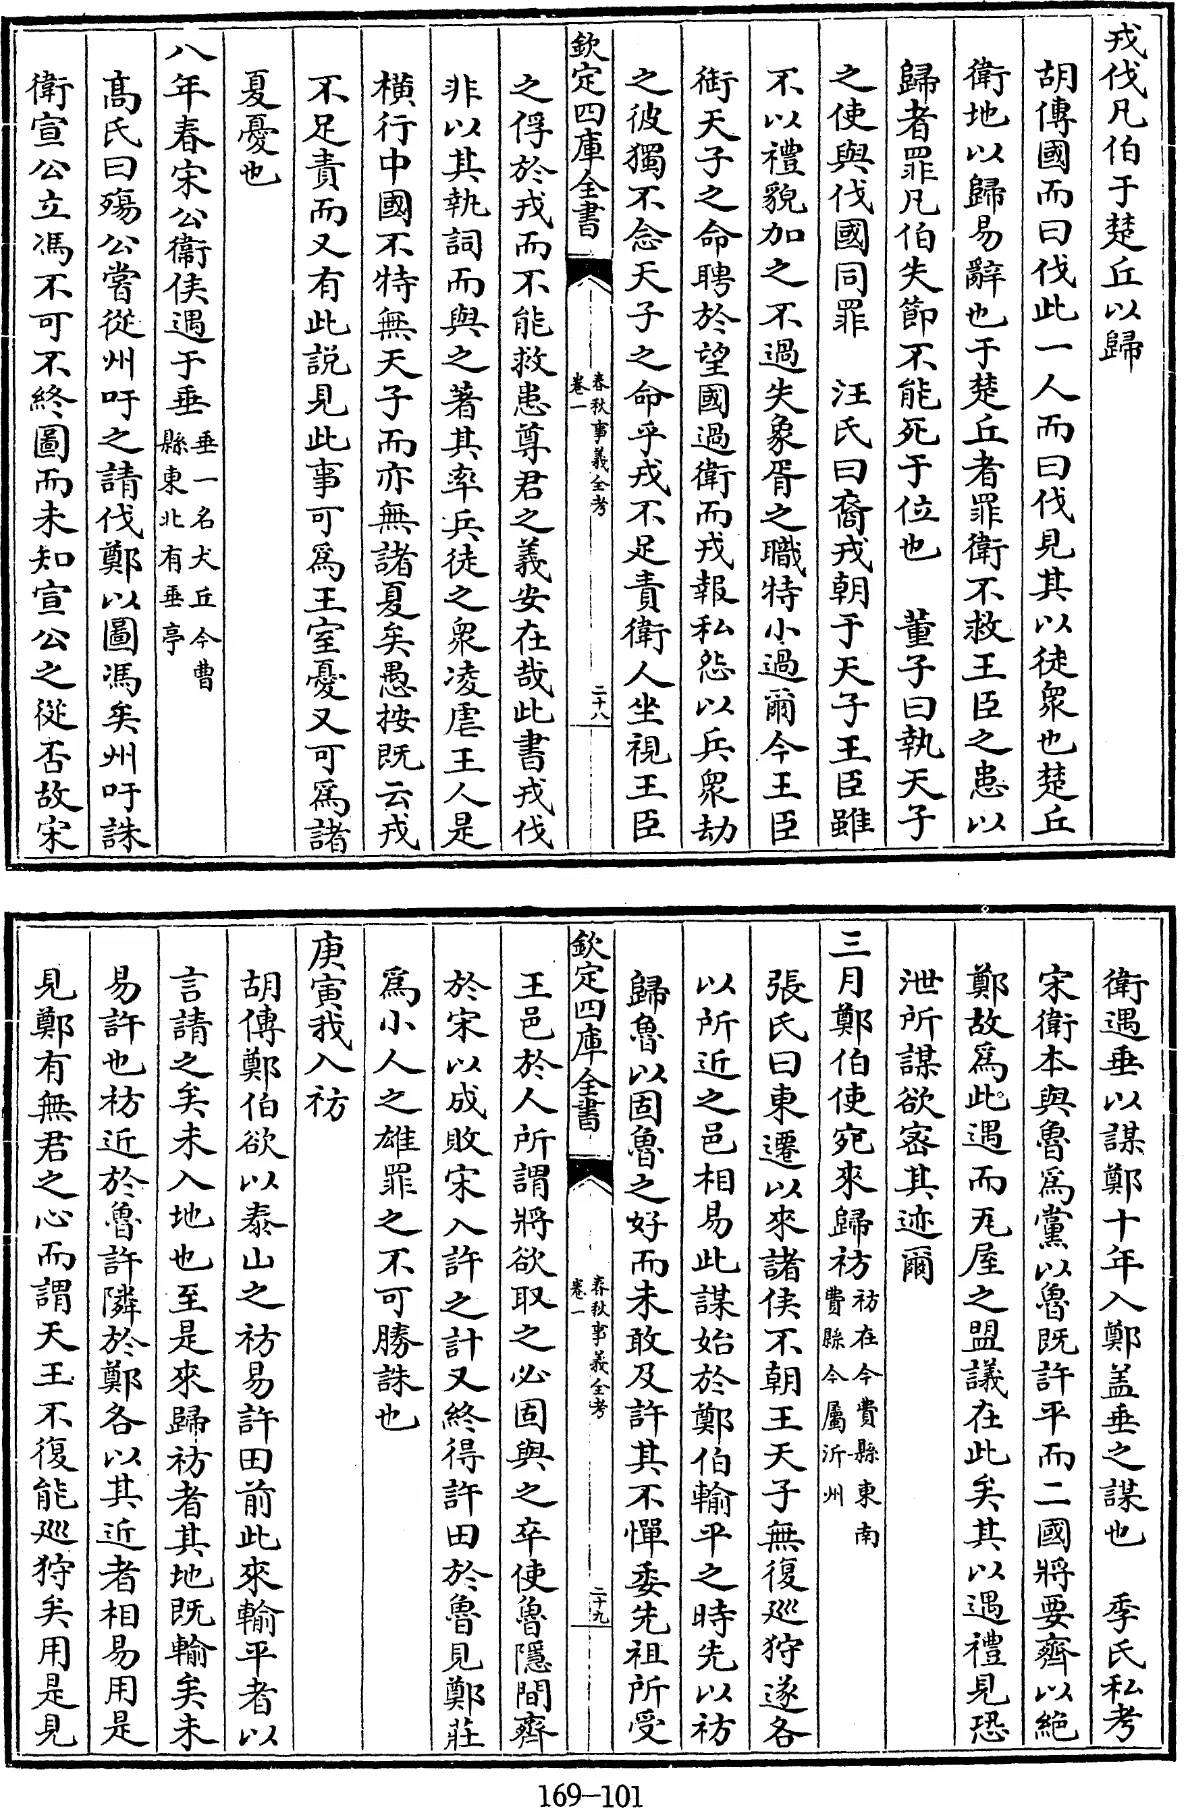 戎伐凡伯于楚丘以歸
胡傳國而曰伐此一人而曰伐見其以徒衆也楚丘
衛地以歸易辭也于楚丘者罪衛不救王臣之患以
歸者罪凡伯失節不能死于位也　董子曰執天子
之使與伐國同罪　汪氏曰裔戎朝于天子王臣雖
不以禮貌加之不過失象胥之職特小過爾今王臣
銜天子之命聘於望國過衛而戎報私怨以兵衆劫
之彼獨不念天子之命乎戎不足責衛人坐視王臣
欽定四庫全書
春秋事義全考
卷一
二十八
之俘於戎而不能救患尊君之義安在哉此書戎伐
非以其執詞而與之著其率兵徒之衆凌虐王人是
横行中國不特無天子而亦無諸夏矣愚按既云戎
不足責而又有此説見此事可爲王室憂又可爲諸
夏憂也
八年春宋公衛侯遇于垂
垂一名犬丘今曹
縣東北有垂亭
髙氏曰殤公嘗從州吁之請伐鄭以圖馮矣州吁誅
衛宣公立馮不可不終圖而未知宣公之從否故宋
衛遇垂以謀鄭十年入鄭盖垂之謀也　季氏私考
宋衛本與魯爲黨以魯既許平而二國將要齊以絶
鄭故爲此遇而瓦屋之盟議在此矣其以遇禮見恐
泄所謀欲宻其迹爾
三月鄭伯使宛來歸祊
祊在今費縣東南
費縣今屬沂州
張氏曰東遷以來諸侯不朝王天子無復廵狩遂各
以所近之邑相易此謀始於鄭伯輸平之時先以祊
歸魯以固魯之好而未敢及許其不憚委先祖所受
欽定四庫全書
春秋事義全考
卷一
二十九
王邑於人所謂將欲取之必固與之卒使魯隱間齊
於宋以成敗宋入許之計又終得許田於魯見鄭莊
爲小人之雄罪之不可勝誅也
庚寅我入祊
胡傳鄭伯欲以泰山之祊易許田前此來輸平者以
言請之矣未入地也至是來歸祊者其地既輸矣未
易許也祊近於魯許隣於鄭各以其近者相易用是
見鄭有無君之心而謂天王不復能廵狩矣用是見
169-101